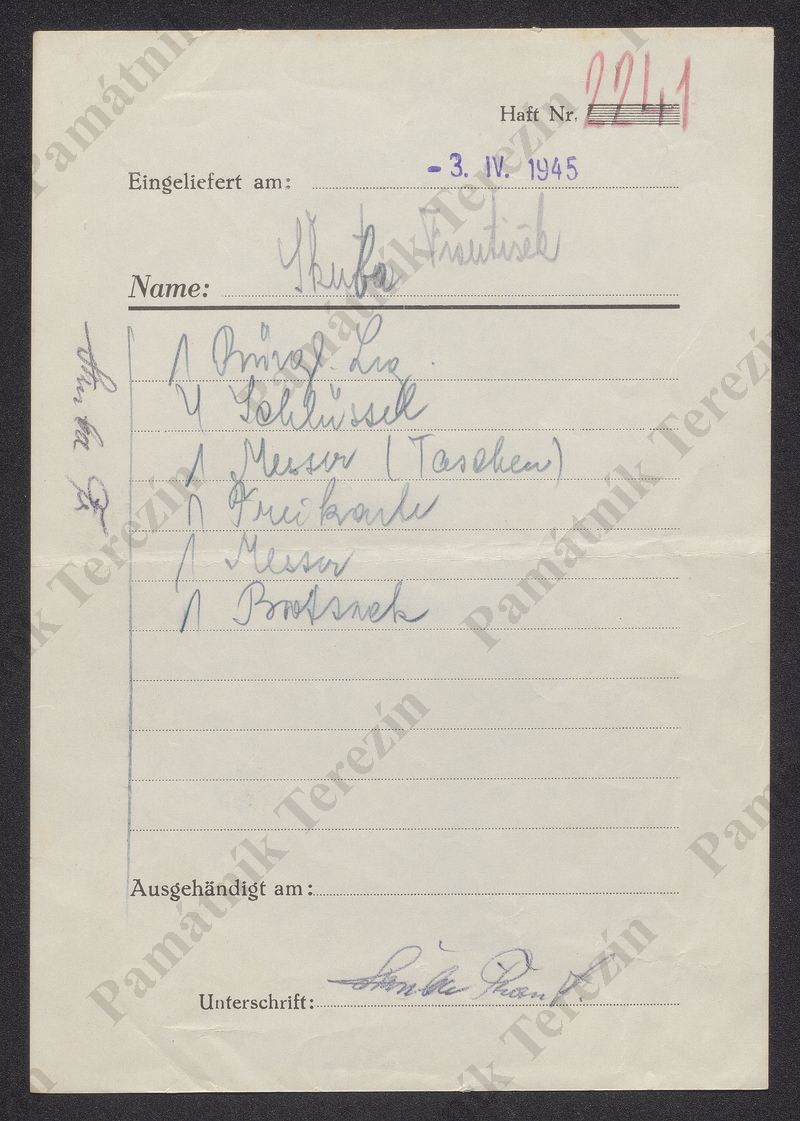 Haft Nr. 2241
Eingeliefert am: - 3. IV. 1945
Name: Škuba František
1 Bürgl. Leg.
4 Schlüssel
1 Messer (Taschen)
1 Freikarte
1 Messer
1 Brotsack
Škuba Fr.
Ausgehändigt am:
Unterschrift: Škuba Frant.
Památník Terezín